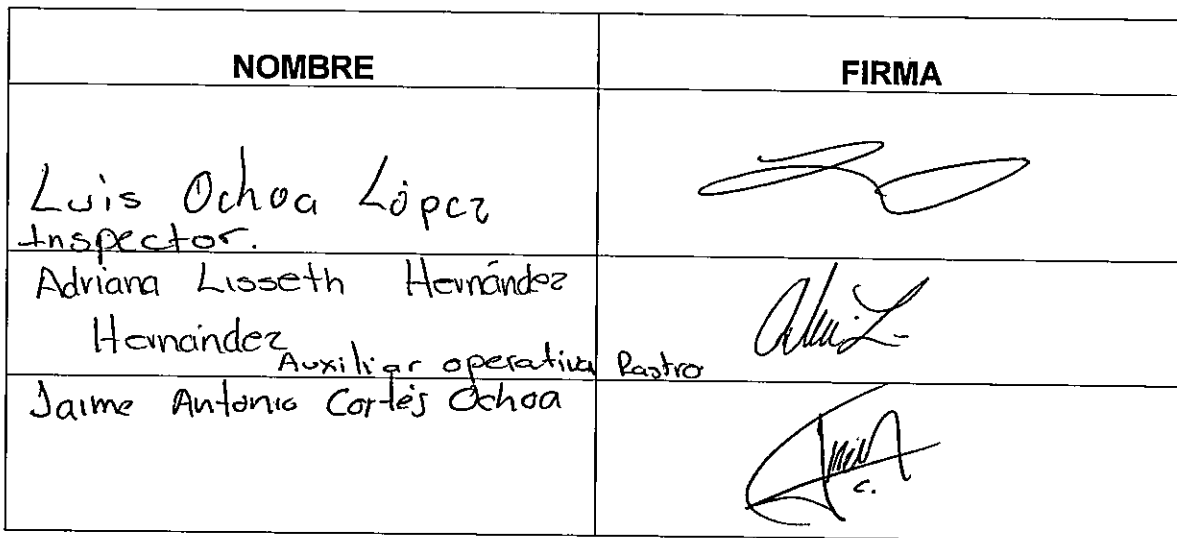 NOMBRE FIRMA
Luis Ochoa López
Inspector.
Adriana Lisseth Hernández
Hernández
Auxiliar operativa Rastro
Jaime Antonio Cortés Ochoa
C.